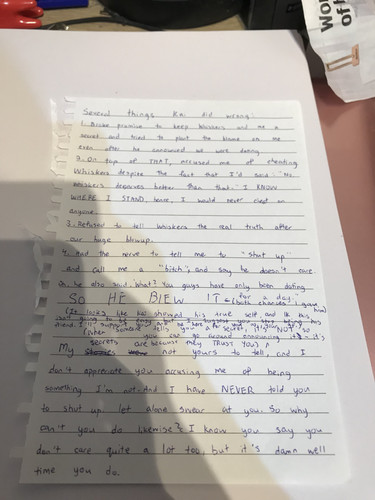 Wo
of
Several things Kai did wrong:
1. Broke promise to keep whiskers, and me a
secret and tried to paint the blame on me
even after he announced we were dating
2. On top of THAT, accused me of cheating
Whiskers despite the fact that I'd said: "No
whiskers deserves better than that." I KNOW
WHERE I STAND, hence, I would never cheat on
anyone.
3. Refused to tell whiskers the real truth after
our huge blowup.
4. Had the nerve to tell me to "shut up"
and call me a "bitch", and say he doesn't care
Oh, he also said: What? You guys have only been dating
for a day.
SO HE BLEW IT (both chances I gave him)
(It looks like he showed his true self, and
(when someone tells you a secret, it's NOT so
you can go around announcing it
secrets are because they TRUST YOU)
My not yours to tell, and I
don't appreciate you accusing me of being
something I'm not. And I have NEVER told you
to shut up, let alone swear at you. So why
can't you do likewise? I know you say you
don't care quite a lot too, but it's damn well
time you do.